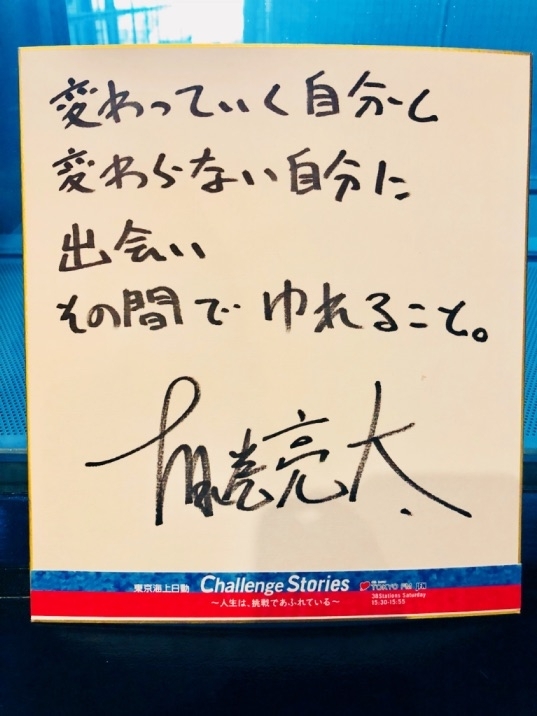 変わっていく自分と
変わらない自分に
出会い
その間で ゆれること。
藤亮太
東京海上日動 Challenge Stories
TOKYO FM JFN
〜人生は、挑戦であふれている〜
38Stations Saturday
15:30-15:55